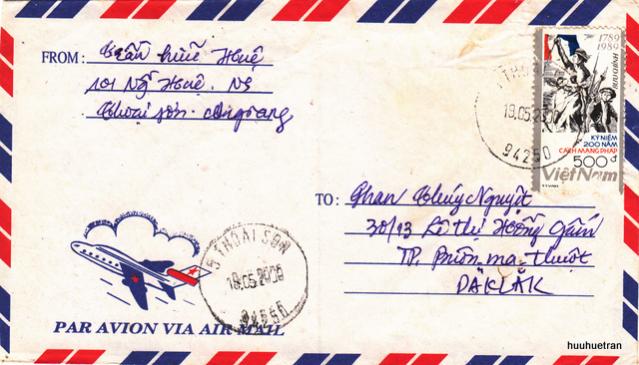 FROM: Trần hữu Huệ
101 Ng Huệ. NS
Thoại sơn - Angiang
1789
1989
KỶ NIỆM
200 NĂM
CÁCH MẠNG PHÁP
500đ
Việt Nam
THOẠI SƠN
19.05.20
94250
TO: Phan Thúy Nguyệt
30/13 Lê Thị Hồng Gấm
TP. Buôn ma thuột
DĂKLĂK
THOẠI SƠN
19.05.2008
PAR AVION VIA AIR MAIL
huuhuetran